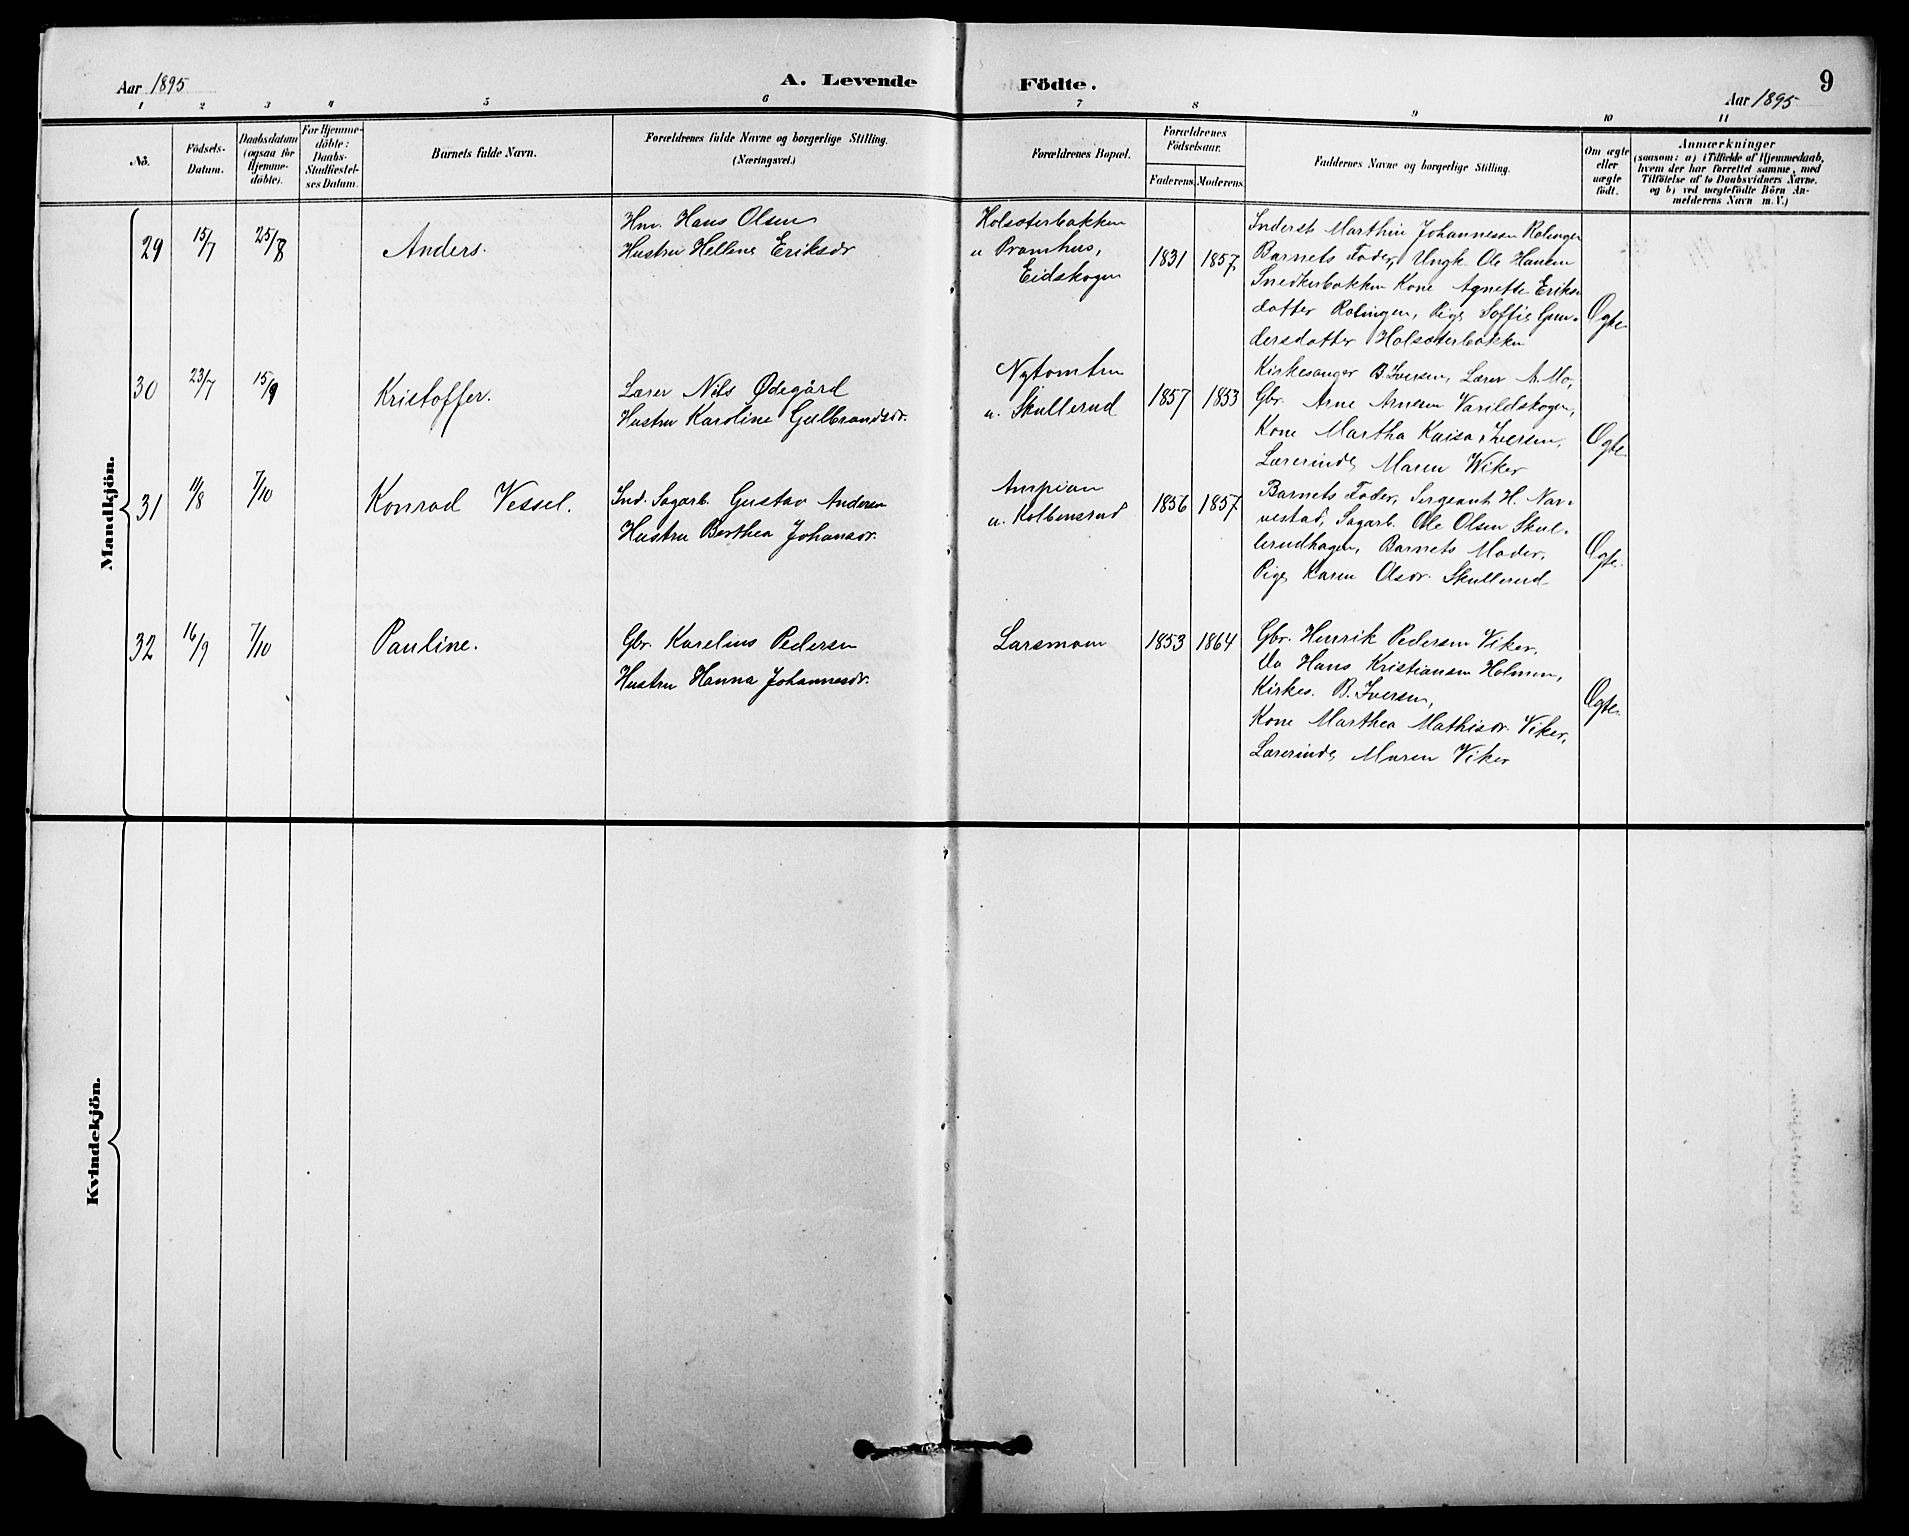 Aar 1895
A. Levende Födte.
9
Aar 1895
1 2 3 4 5 6 7 8 9 10 11
No.
Födsels-
Datum.
Daabsdatum
(ogsaa for
Hjemme-
döbte).
For Hjemme-
döbte:
Daabs-
Stadfæstel-
ses Datum.
Barnets fulde Navn.
Forældrenes fulde Navne og borgerlige Stilling.
(Næringsvei.)
Forældrenes Bopæl.
Forældrenes
Födselsaar.
Faderens. Moderens.
Faddernes Navne og borgerlige Stilling.
Om ægte
eller
uægte
födt.
Anmærkninger
(saasom: a) i Tilfælde af Hjemmedaab,
hvem der har forrettet samme, med
Tilföielse af to Daabsvidners Navne,
og b) ved uægtefödte Börn An-
melderens Navn m. V.)
Mandkjön.
29 15/7 25/8
Anders.
Hm. Hans Olsen
Hustru Hellene Eriksdr
Holsæterbakken
u Pramhus,
Eidskogen
1831 1857
Inderst Marthin Johannesen Rolingen
Barnets Fader, Ungk. Ole Hansen
Snedkerbakken Kone Agnethe Eriks
datter Rolingen, Pige Soffie Gun-
dersdatter Holsæterbakken
Ægte
30 23/7 15/9
Kristoffer.
Lærer Nils Ødegård
Hustru Karoline Gulbrandsdr.
Nytomten
u. Skullerud
1857 1853
Kirkesanger B. Iversen, Lærer A. Mo,
Gbr. Arne Arnesen Varildskogen,
Kone Martha Kaisa Iversen,
Lærerinde Maren Wiker
Ægte
31 11/8 7/10
Konrad Vessel.
Ind. Sagarb. Gustav Andersen
Hustru Berthea Johansdr.
Ampian
u. Kolbensrud
1856 1857
Barnets Fader, Sergeant H. Nav-
vestad, Sagarb. Ole Olsen Skul-
lerudhagen, Barnets Moder,
Pige Karen Olsdr. Skullerud
Ægte.
32 16/9 7/10
Pauline.
Gbr. Karelius Pedersen
Hustru Hanna Johannesdr.
Larsmoen
1853 1864
Gbr. Henrik Pedersen Viker,
Do Hans Kristiansen Holmen,
Kirkes. B. Iversen,
Kone Marthea Mathisdr. Viker,
Lærerinde Maren Viker
Ægte.
Kvindekjön.